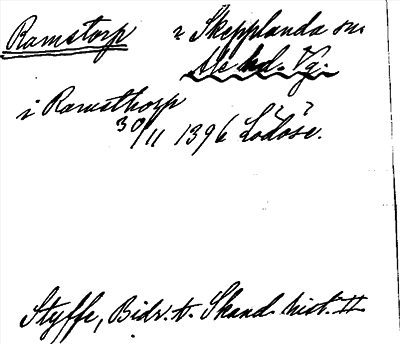 Ramstorp i Skepplanda sn.
Ale hd. Vg.
i Ramsthorp
30/11 1396 Lödöse.
Styffe, Bidr. t. Skand. hist. II